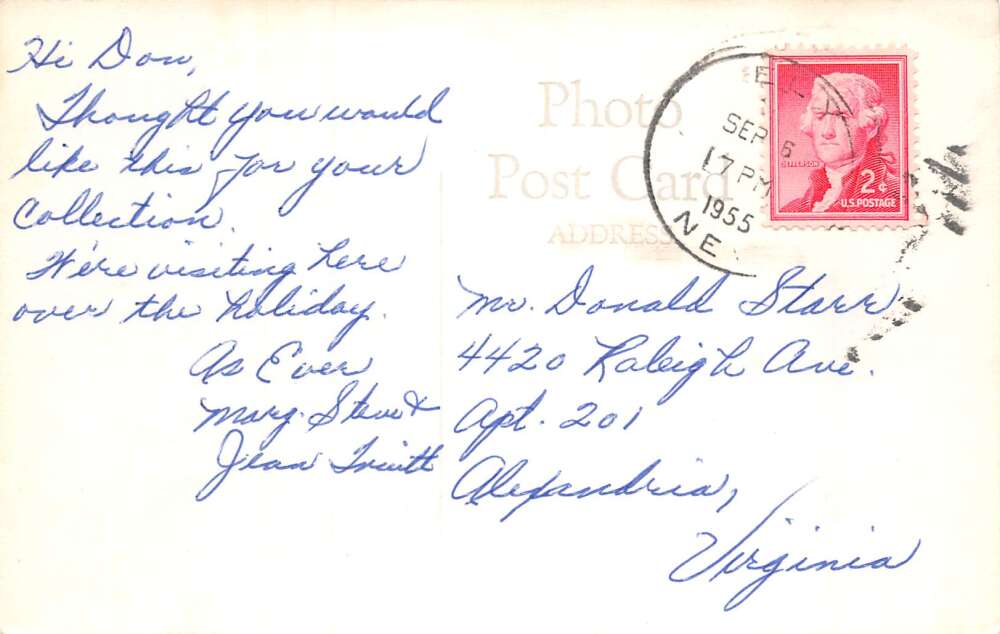 Hi Don,
Thought you would
like this for your
Collection.
We're visiting here
over the holiday.
As Ever
Marg. Steve &
Jean
Photo
Post Card
ADDRESS
SEP 6
17 PM
1955
NE
JEFFERSON
2¢
U.S. POSTAGE
Mr. Donald Starr
4420 Raleigh Ave.
Apt. 201
Alexandria,
Virginia